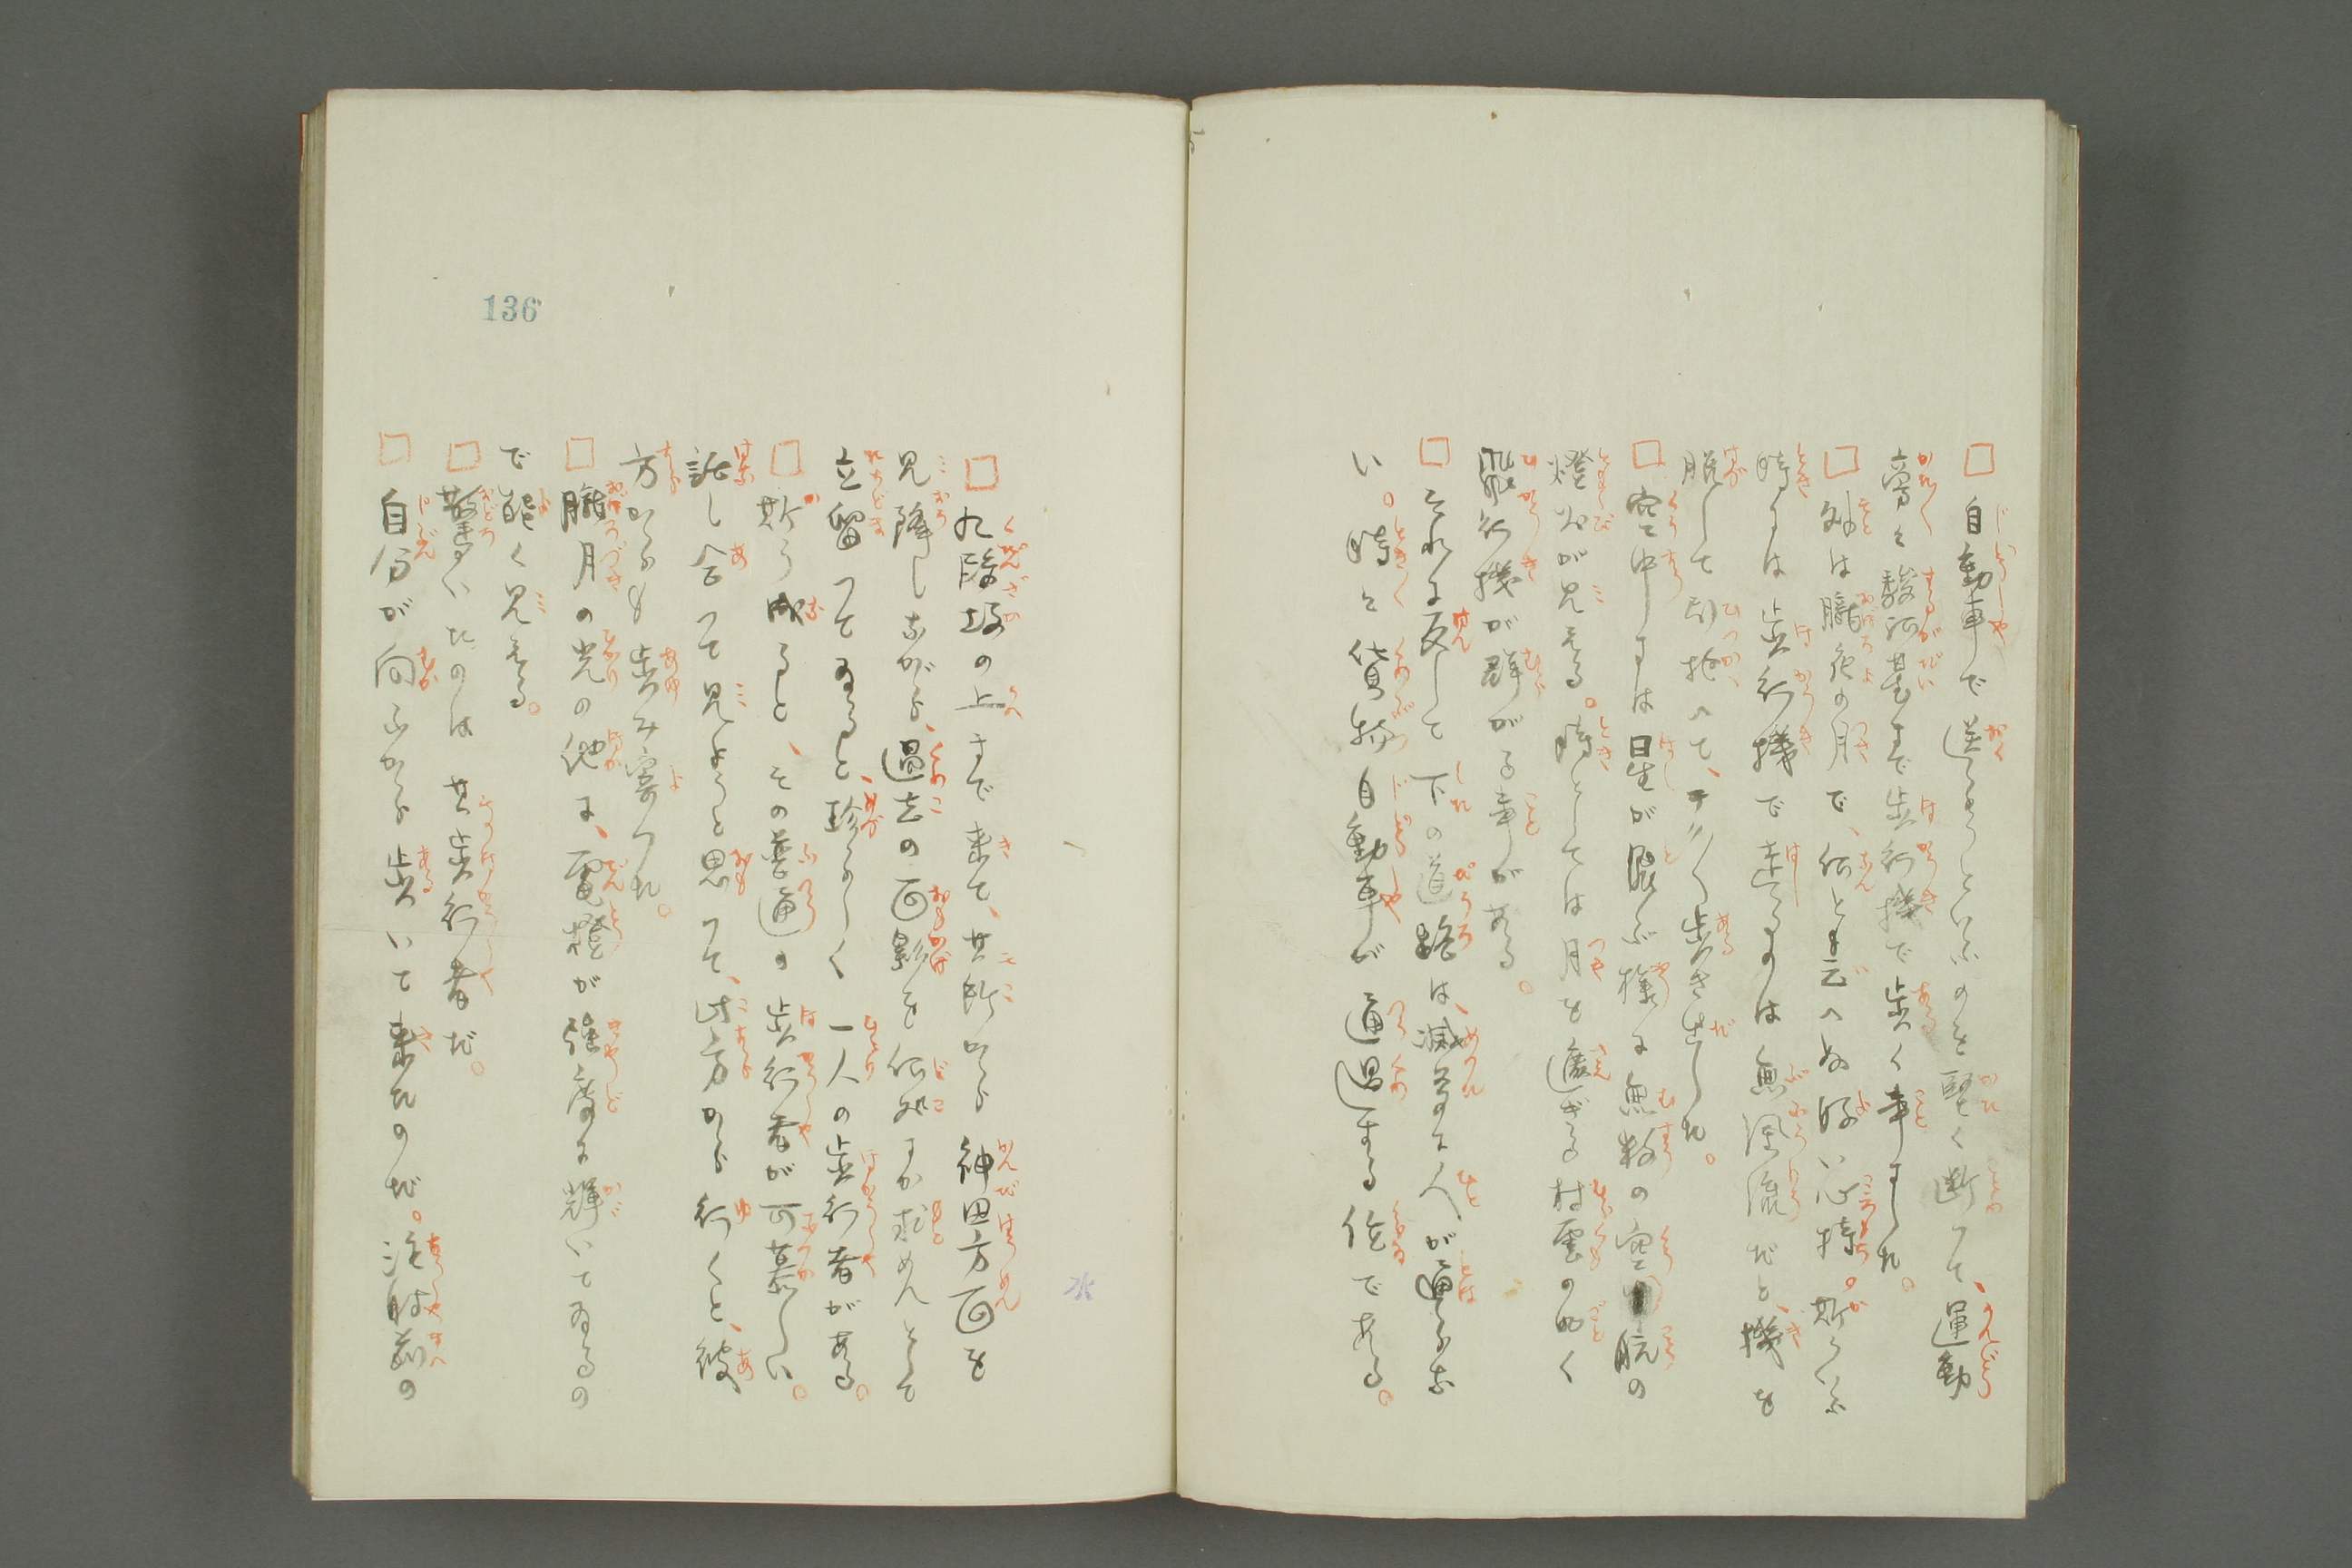 □自動車で送らうといふのを堅く断つて、運動
旁々駿河台まで歩行機で歩く事にした。
□外は朧夜の月で、何とも云へぬ好い心持。斯ういふ
時には歩行機で走るのは無風流だと、機を
脱して引抱へて、テク〳〵歩き出した。
□空中には星が飛ぶ様に無数の空中船の
燈火が見える。時としては月を遮ぎる村雲の如く
飛行機が群がる事がある。
□それに反して下の道路は、滅多に人が通らな
い。時々貨物自動車が通過する位である。
□九段坂の上まで来て、其所から神田方面を
見降しながら、過去の面影を何処にか求めんとて
立留つてゐると、珍らしく一人の歩行者がある。
□斯う成ると、その普通の歩行者が可慕しい。
話し合つて見ようと思つて、此方から行くと、彼
方からも歩み寄つた。
□朧月の光の他に、電燈が強度に輝いてゐるの
で能く見える。
□驚ろいたのは其歩行者だ。
□自分が向ふから歩いて来たのだ。注射前の
136